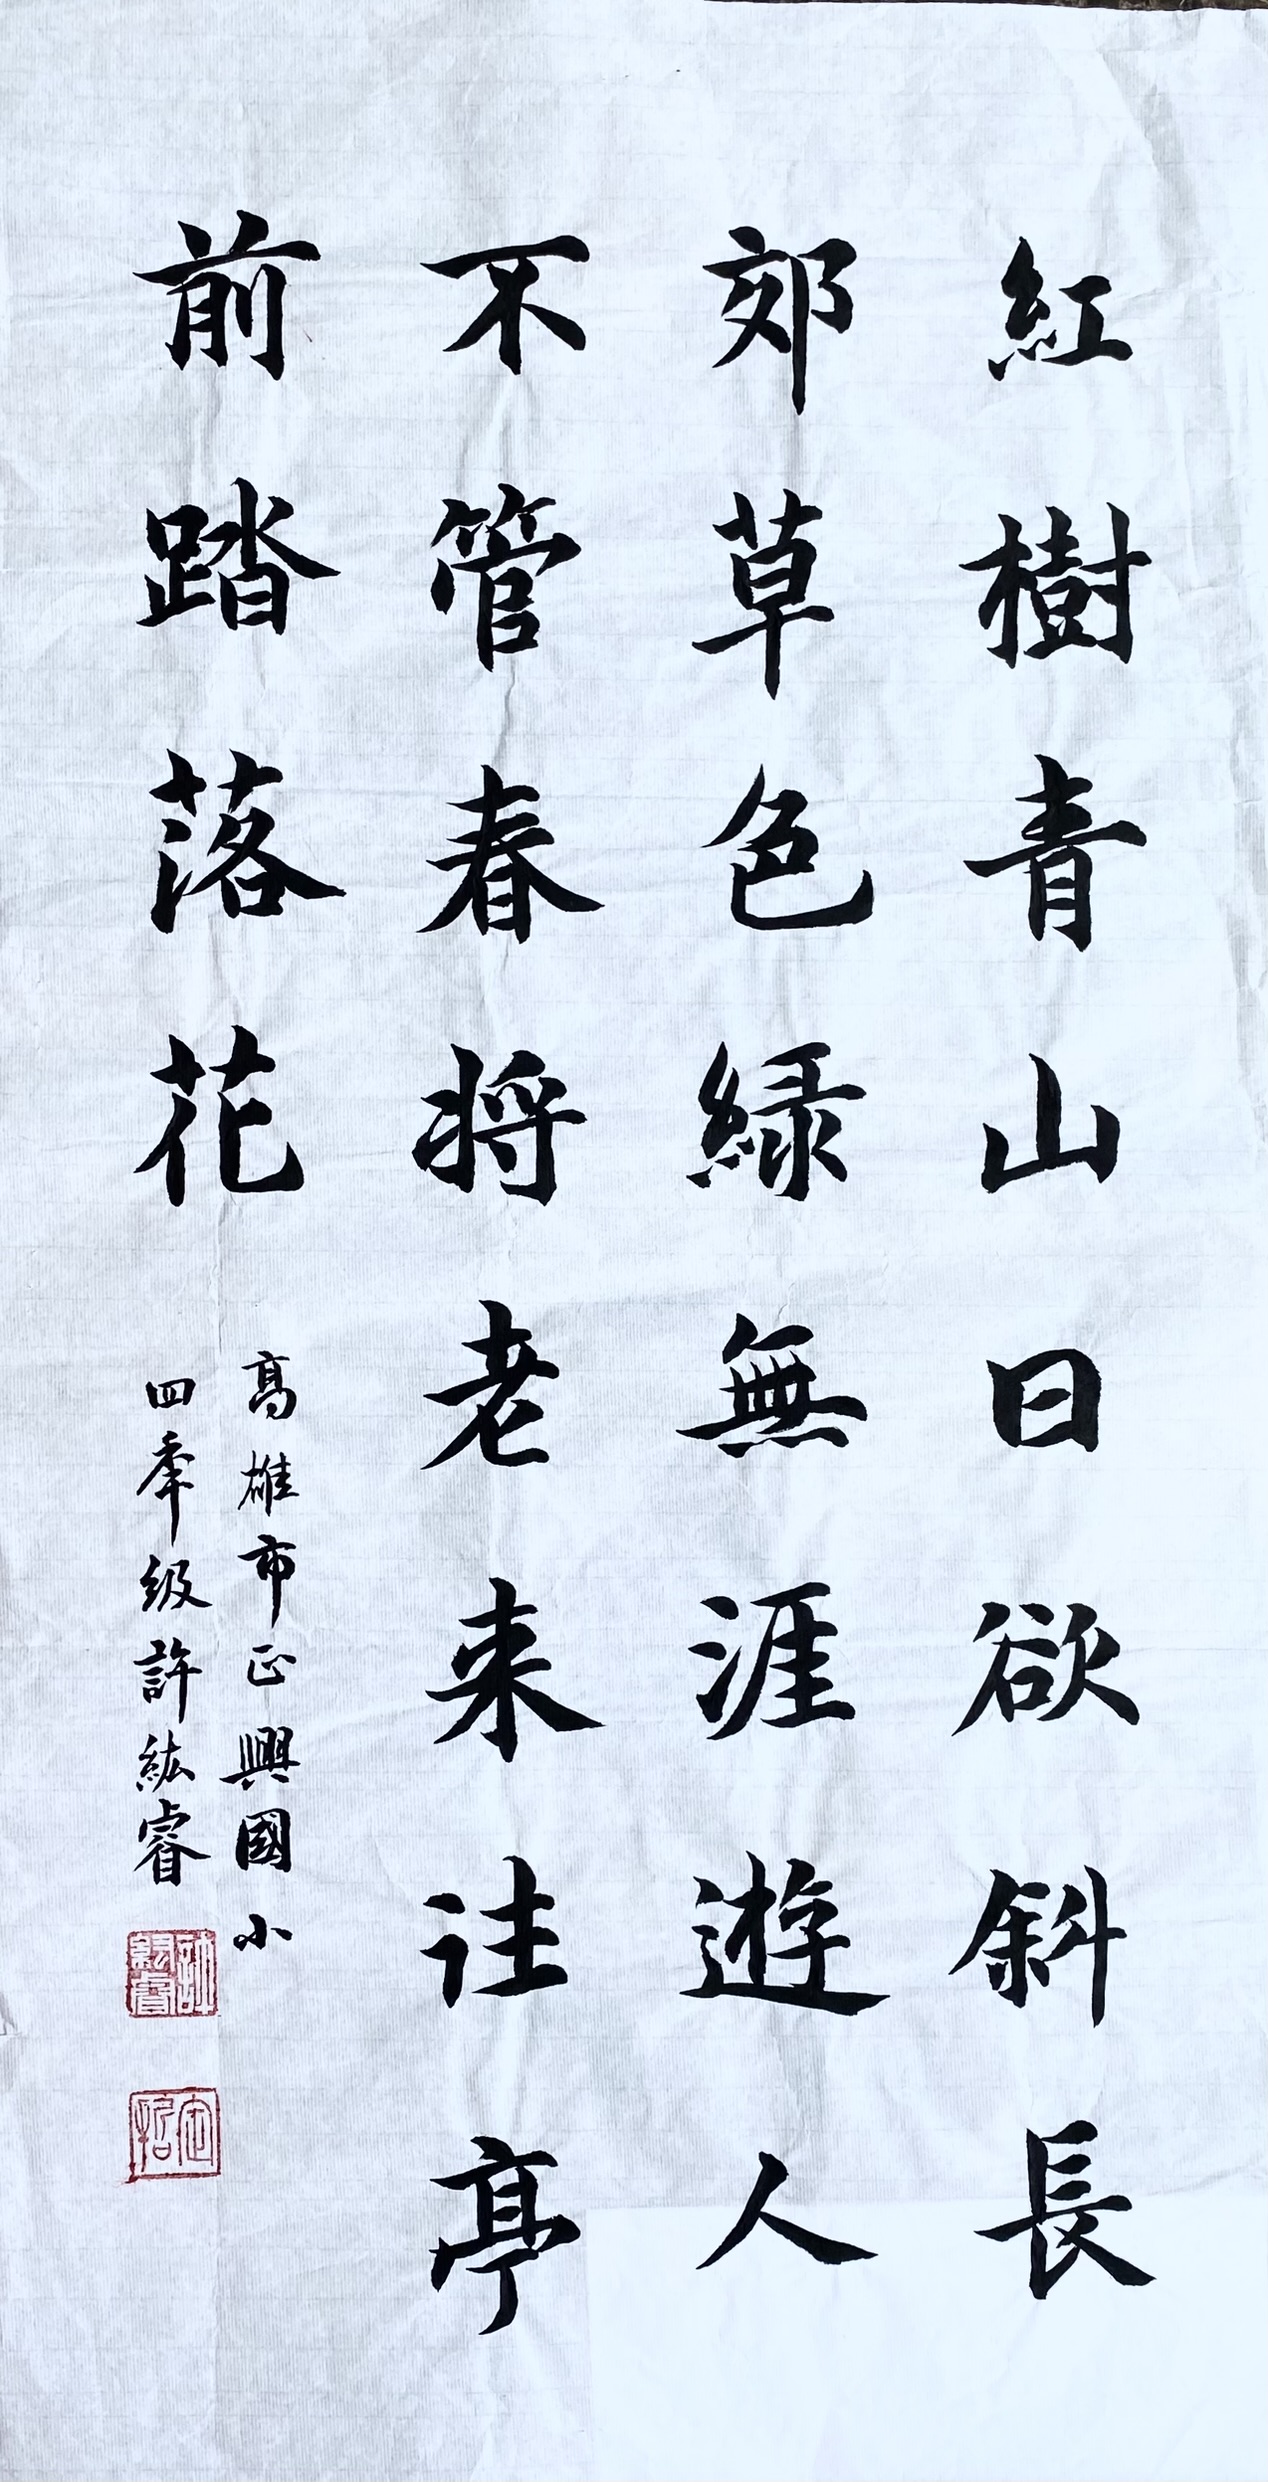 紅樹青山日欲斜長
郊草色緑無涯遊人
不管春将老来往亭
前踏落花
高雄市正興國小
四年級許紘睿
許紘睿